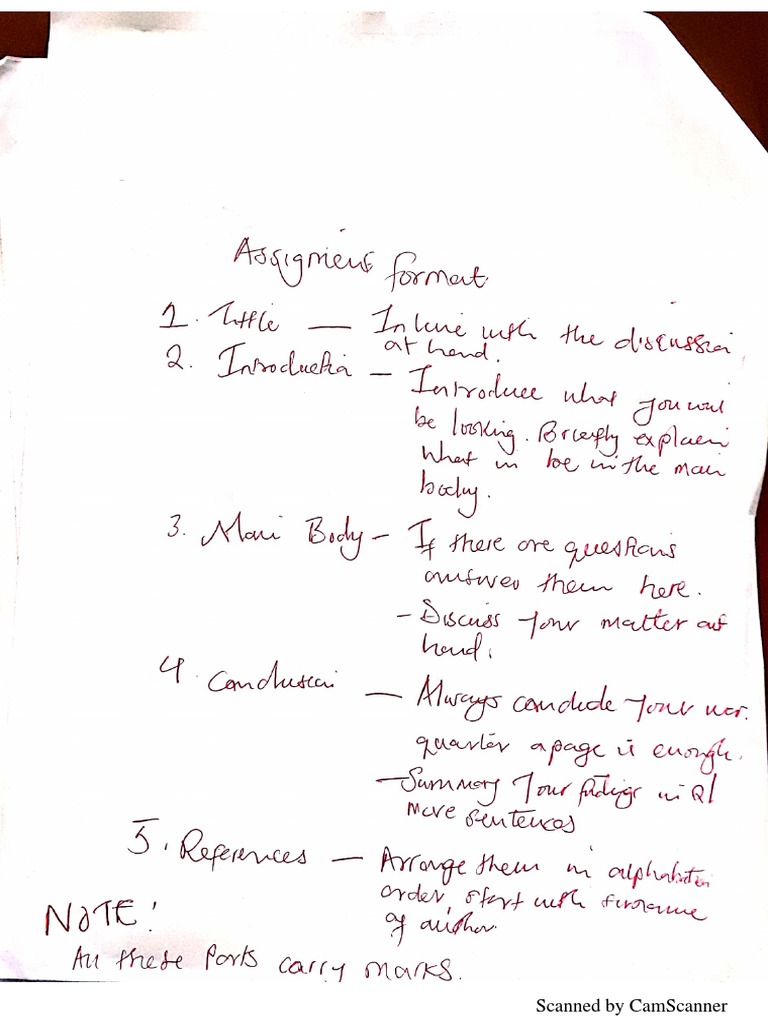 Assignment format
1. Tittle — In line with the discussion
at hand.
2. Introduction — Introduce what you will
be looking. Briefly explain
what in be in the main
body.
3. Main Body — If there are questions
answer them here.
- Discuss your matter at
hand.
4. Conclusion — Always conclude your wor.
quarter a page is enough.
- Summary your findings in
more sentences
5. References — Arrange them in alphabetic
order, start with surname
of author.
NOTE!
All these parts carry marks.
Scanned by CamScanner